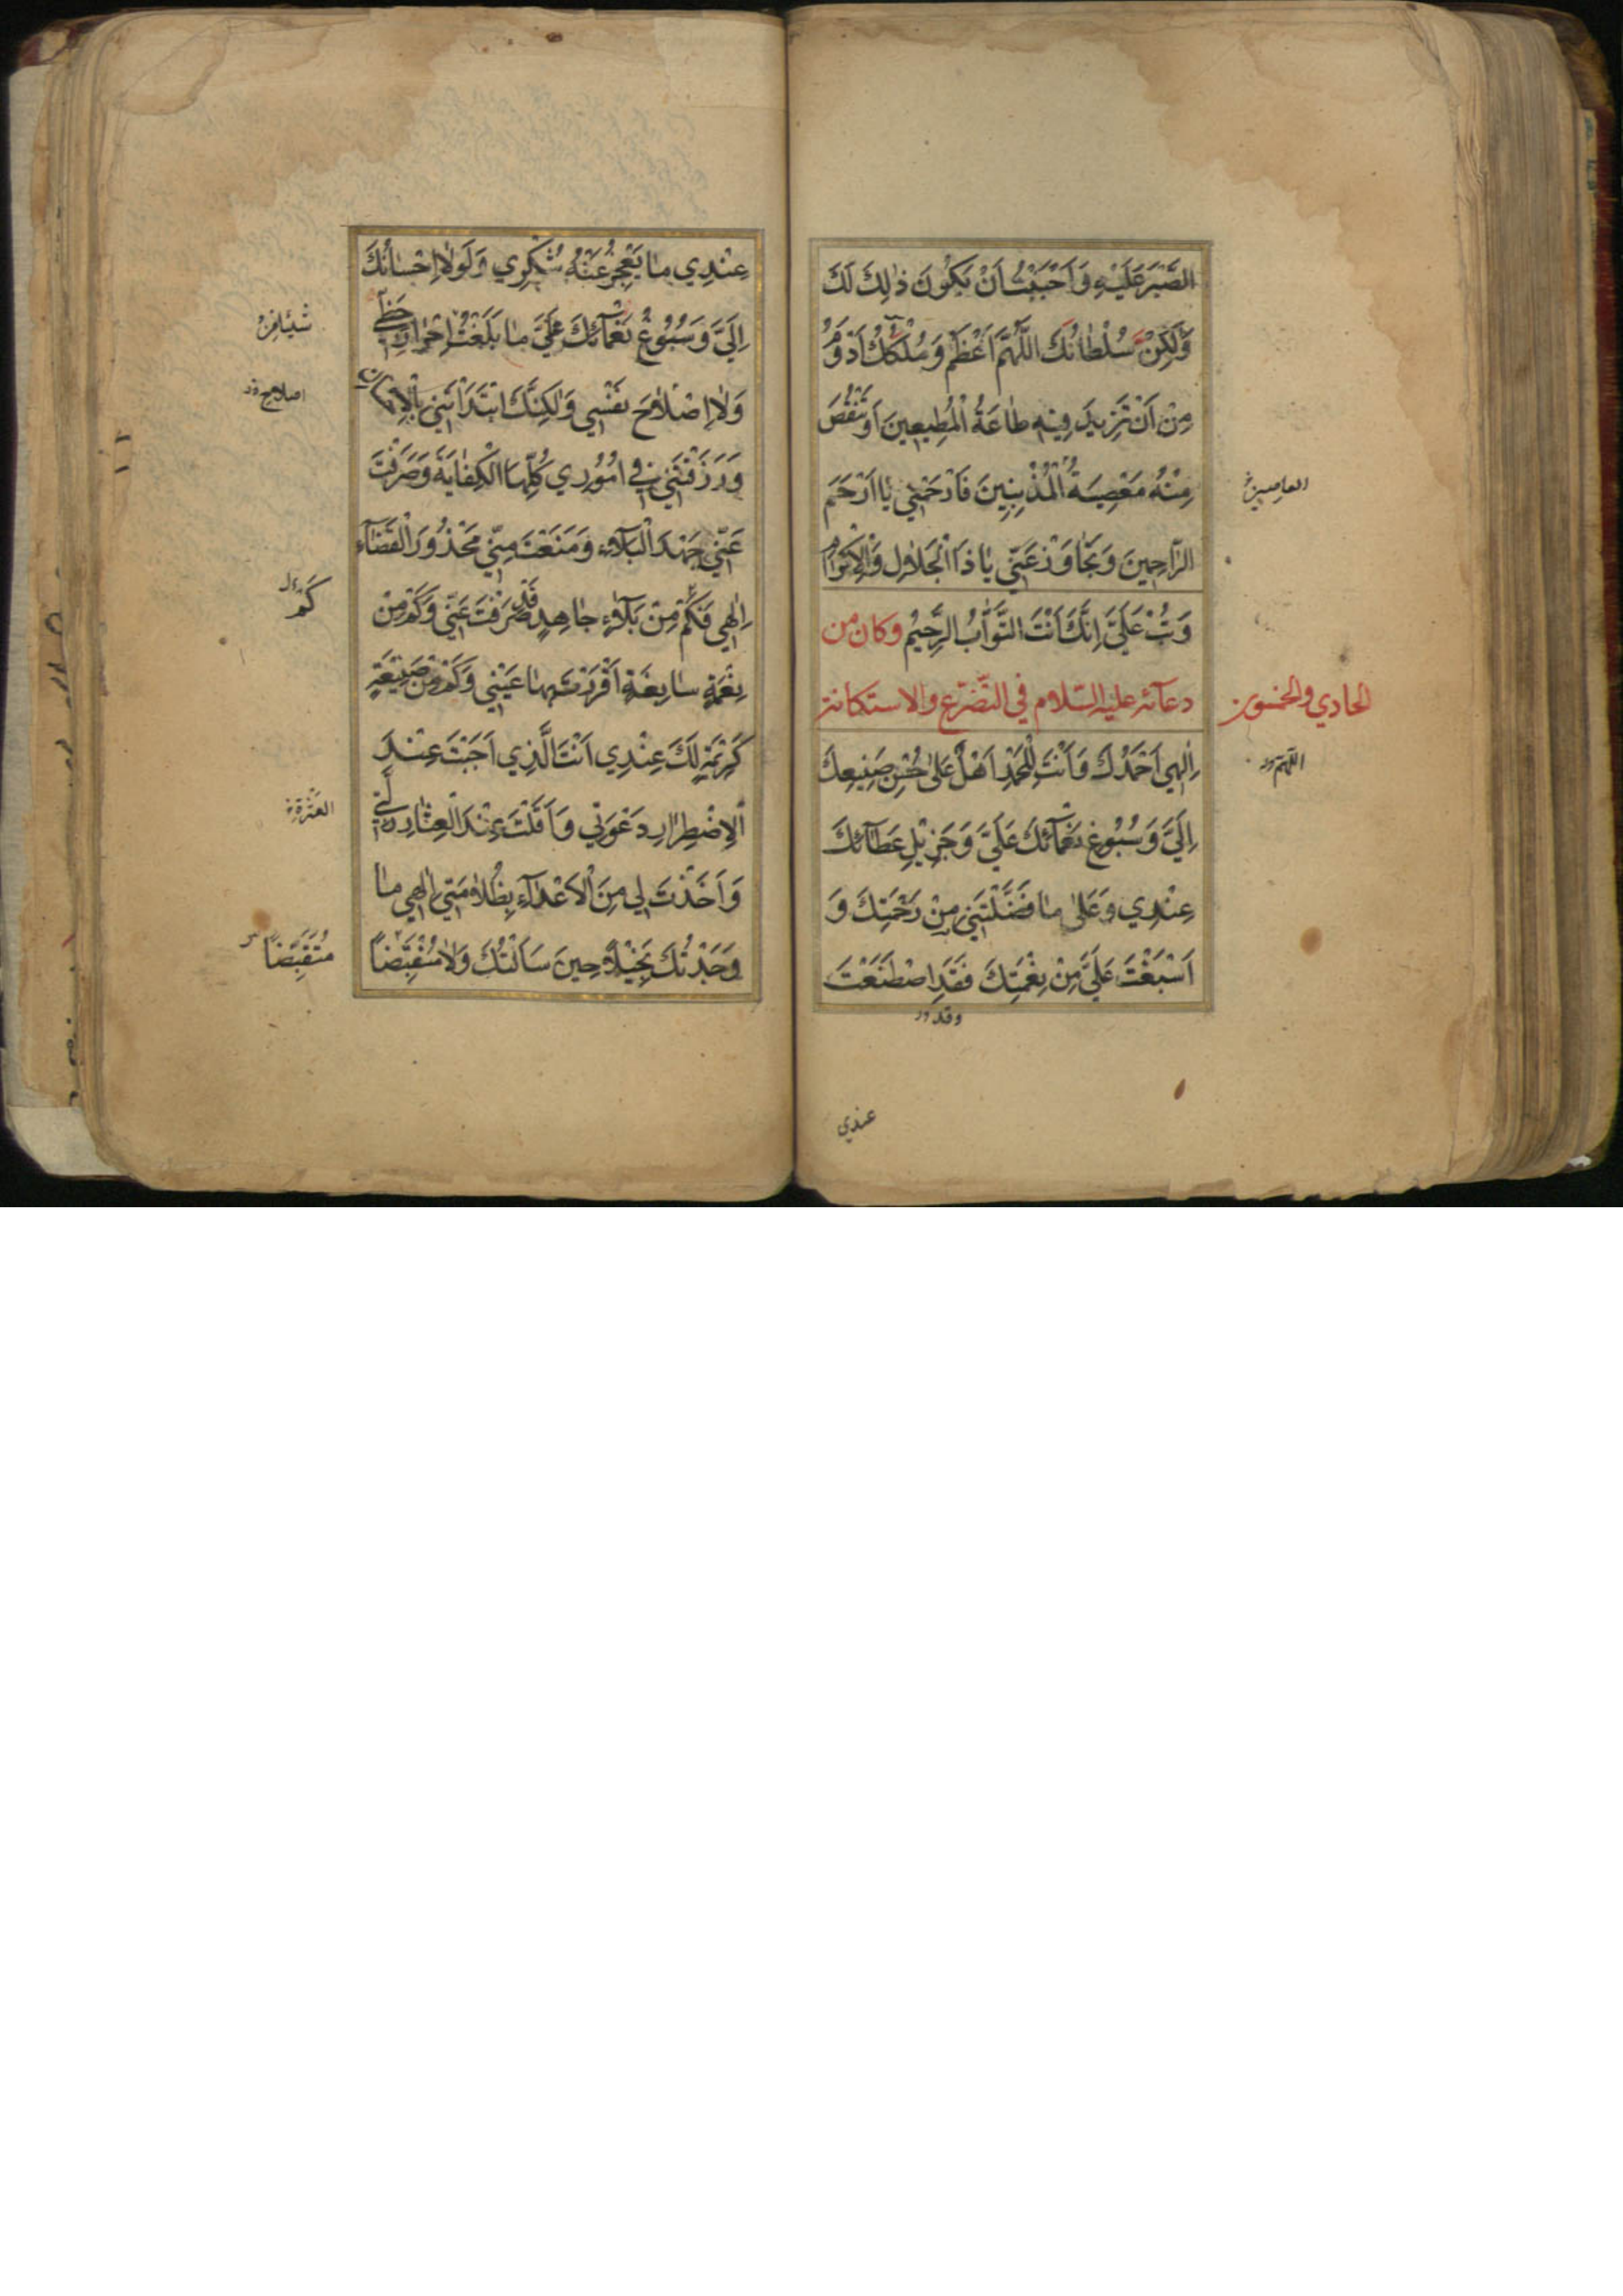 الصَّبْرَ عَلَيْهِ وَاَحْبَبْتُ اَنْ يَكُونَ ذٰلِكَ لَكَ
وَلٰكِنْ سُلْطٰانُكَ اللّٰهُمَّ اَعْظَمُ وَمُلْكُكَ اَدْوَمُ
مِنْ اَنْ تَزِيدَ فِيهِ طٰاعَةُ الْمُطِيعِينَ اَوْ تَنْقُصَ
مِنْهُ مَعْصِيَةُ الْمُذْنِبِينَ فَارْحَمْنِي يٰا اَرْحَمَ
العاصين
الرّٰاحِمِينَ وَتَجٰاوَزْ عَنِّي يٰا ذَا الْجَلٰالِ وَالْاِكْرٰامِ
وَتُبْ عَلَيَّ اِنَّكَ اَنْتَ التَّوّٰابُ الرَّحِيمُ وكان من
دعآئه عليه السّلام في التّضرّع والاستكانة
الحادي والخمسون
اِلٰهِي اَحْمَدُكَ وَاَنْتَ لِلْحَمْدِ اَهْلٌ عَلٰى حُسْنِ صَنِيعِكَ
اللّهمّ
اِلَيَّ وَسُبُوغِ نَعْمٰآئِكَ عَلَيَّ وَجَزِيلِ عَطٰآئِكَ
عِنْدِي وَعَلٰى مٰا فَضَّلْتَنِي مِنْ رَحْمَتِكَ وَ
اَسْبَغْتَ عَلَيَّ مِنْ نِعْمَتِكَ فَقَدِ اصْطَنَعْتَ
وقد
عندي
عِنْدِي مٰا يَعْجِزُ عَنْهُ شُكْرِي وَلَوْلٰا اِحْسٰانُكَ
اِلَيَّ وَسُبُوغُ نَعْمٰآئِكَ عَلَيَّ مٰا بَلَغْتُ اِحْرٰازَ حَظِّي
وَلٰا اِصْلٰاحَ نَفْسِي وَلٰكِنَّكَ ابْتَدَاْتَنِي بِالْاِحْسٰانِ
اصلاح
وَرَزَقْتَنِي فِي اُمُورِي كُلِّهَا الْكِفٰايَةَ وَصَرَفْتَ
عَنِّي جَهْدَ الْبَلٰآءِ وَمَنَعْتَ مِنِّي مَحْذُورَ الْقَضٰآءِ
اِلٰهِي فَكَمْ مِنْ بَلٰآءٍ جٰاهِدٍ قَدْ صَرَفْتَ عَنِّي وَكَمْ مِنْ
كَمْ
نِعْمَةٍ سٰابِغَةٍ اَقْرَرْتَ بِهٰا عَيْنِي وَكَمْ مِنْ صَنِيعَةٍ
كَرِيمَةٍ لَكَ عِنْدِي اَنْتَ الَّذِي اَجَبْتَ عِنْدَ
الْاِضْطِرٰارِ دَعْوَتِي وَاَقَلْتَ عِنْدَ الْعِثٰارِ زَلَّتِي
وَاَخَذْتَ لِي مِنَ الْاَعْدٰآءِ بِظُلٰامَتِي اِلٰهِي مٰا
وَجَدْتُكَ بَخِيلًا حِينَ سَاَلْتُكَ وَلٰا مُنْقَبِضًا
مُتَقَبِّضًا